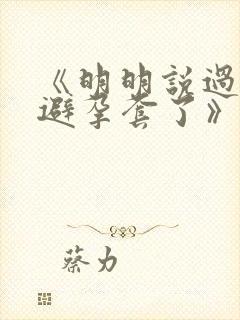 《明明說過
避孕套了》
蔡力